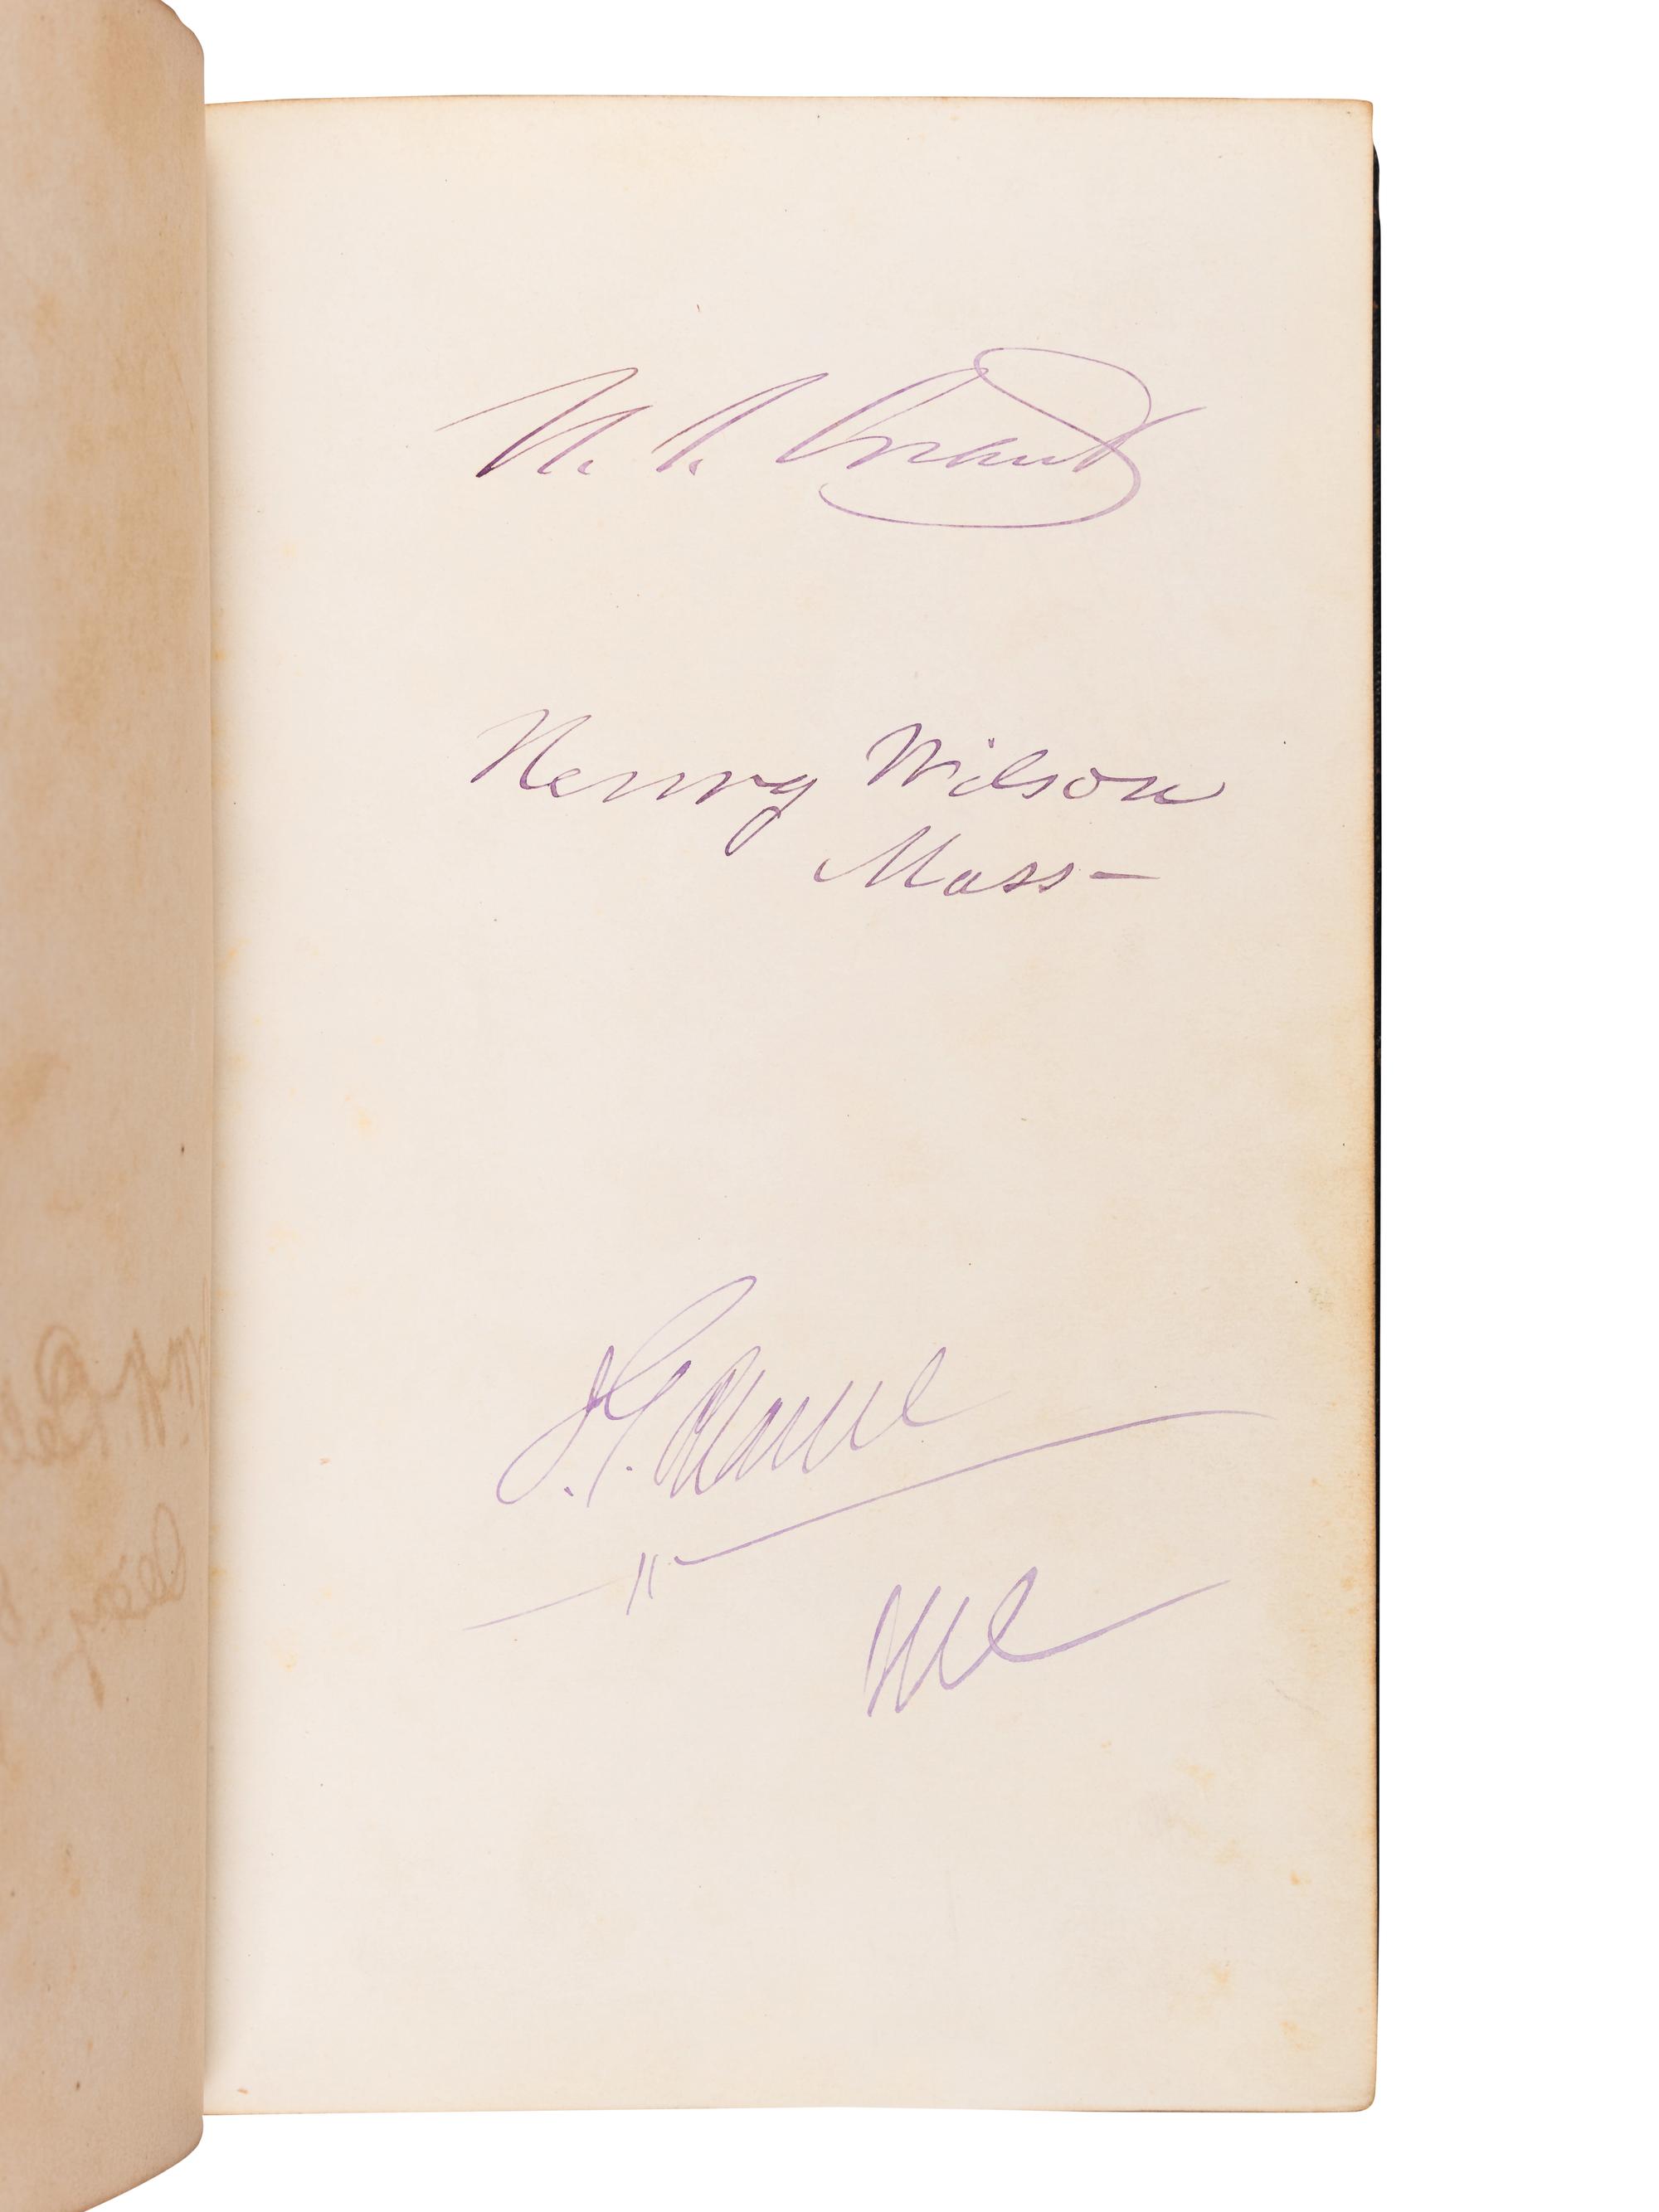 U. S. Grant
Henry Wilson
Mass—
J. G. Blaine
Me